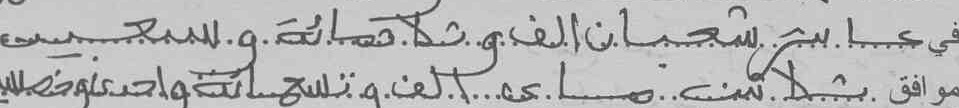 في عاشر شعبان الف و ثلاثمائة و سبعين
موافق ثلاثين ماي الف و تسعمائة واحد وخمسين